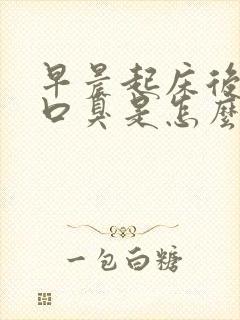 早晨起床後
口臭是怎麼
一包白糖